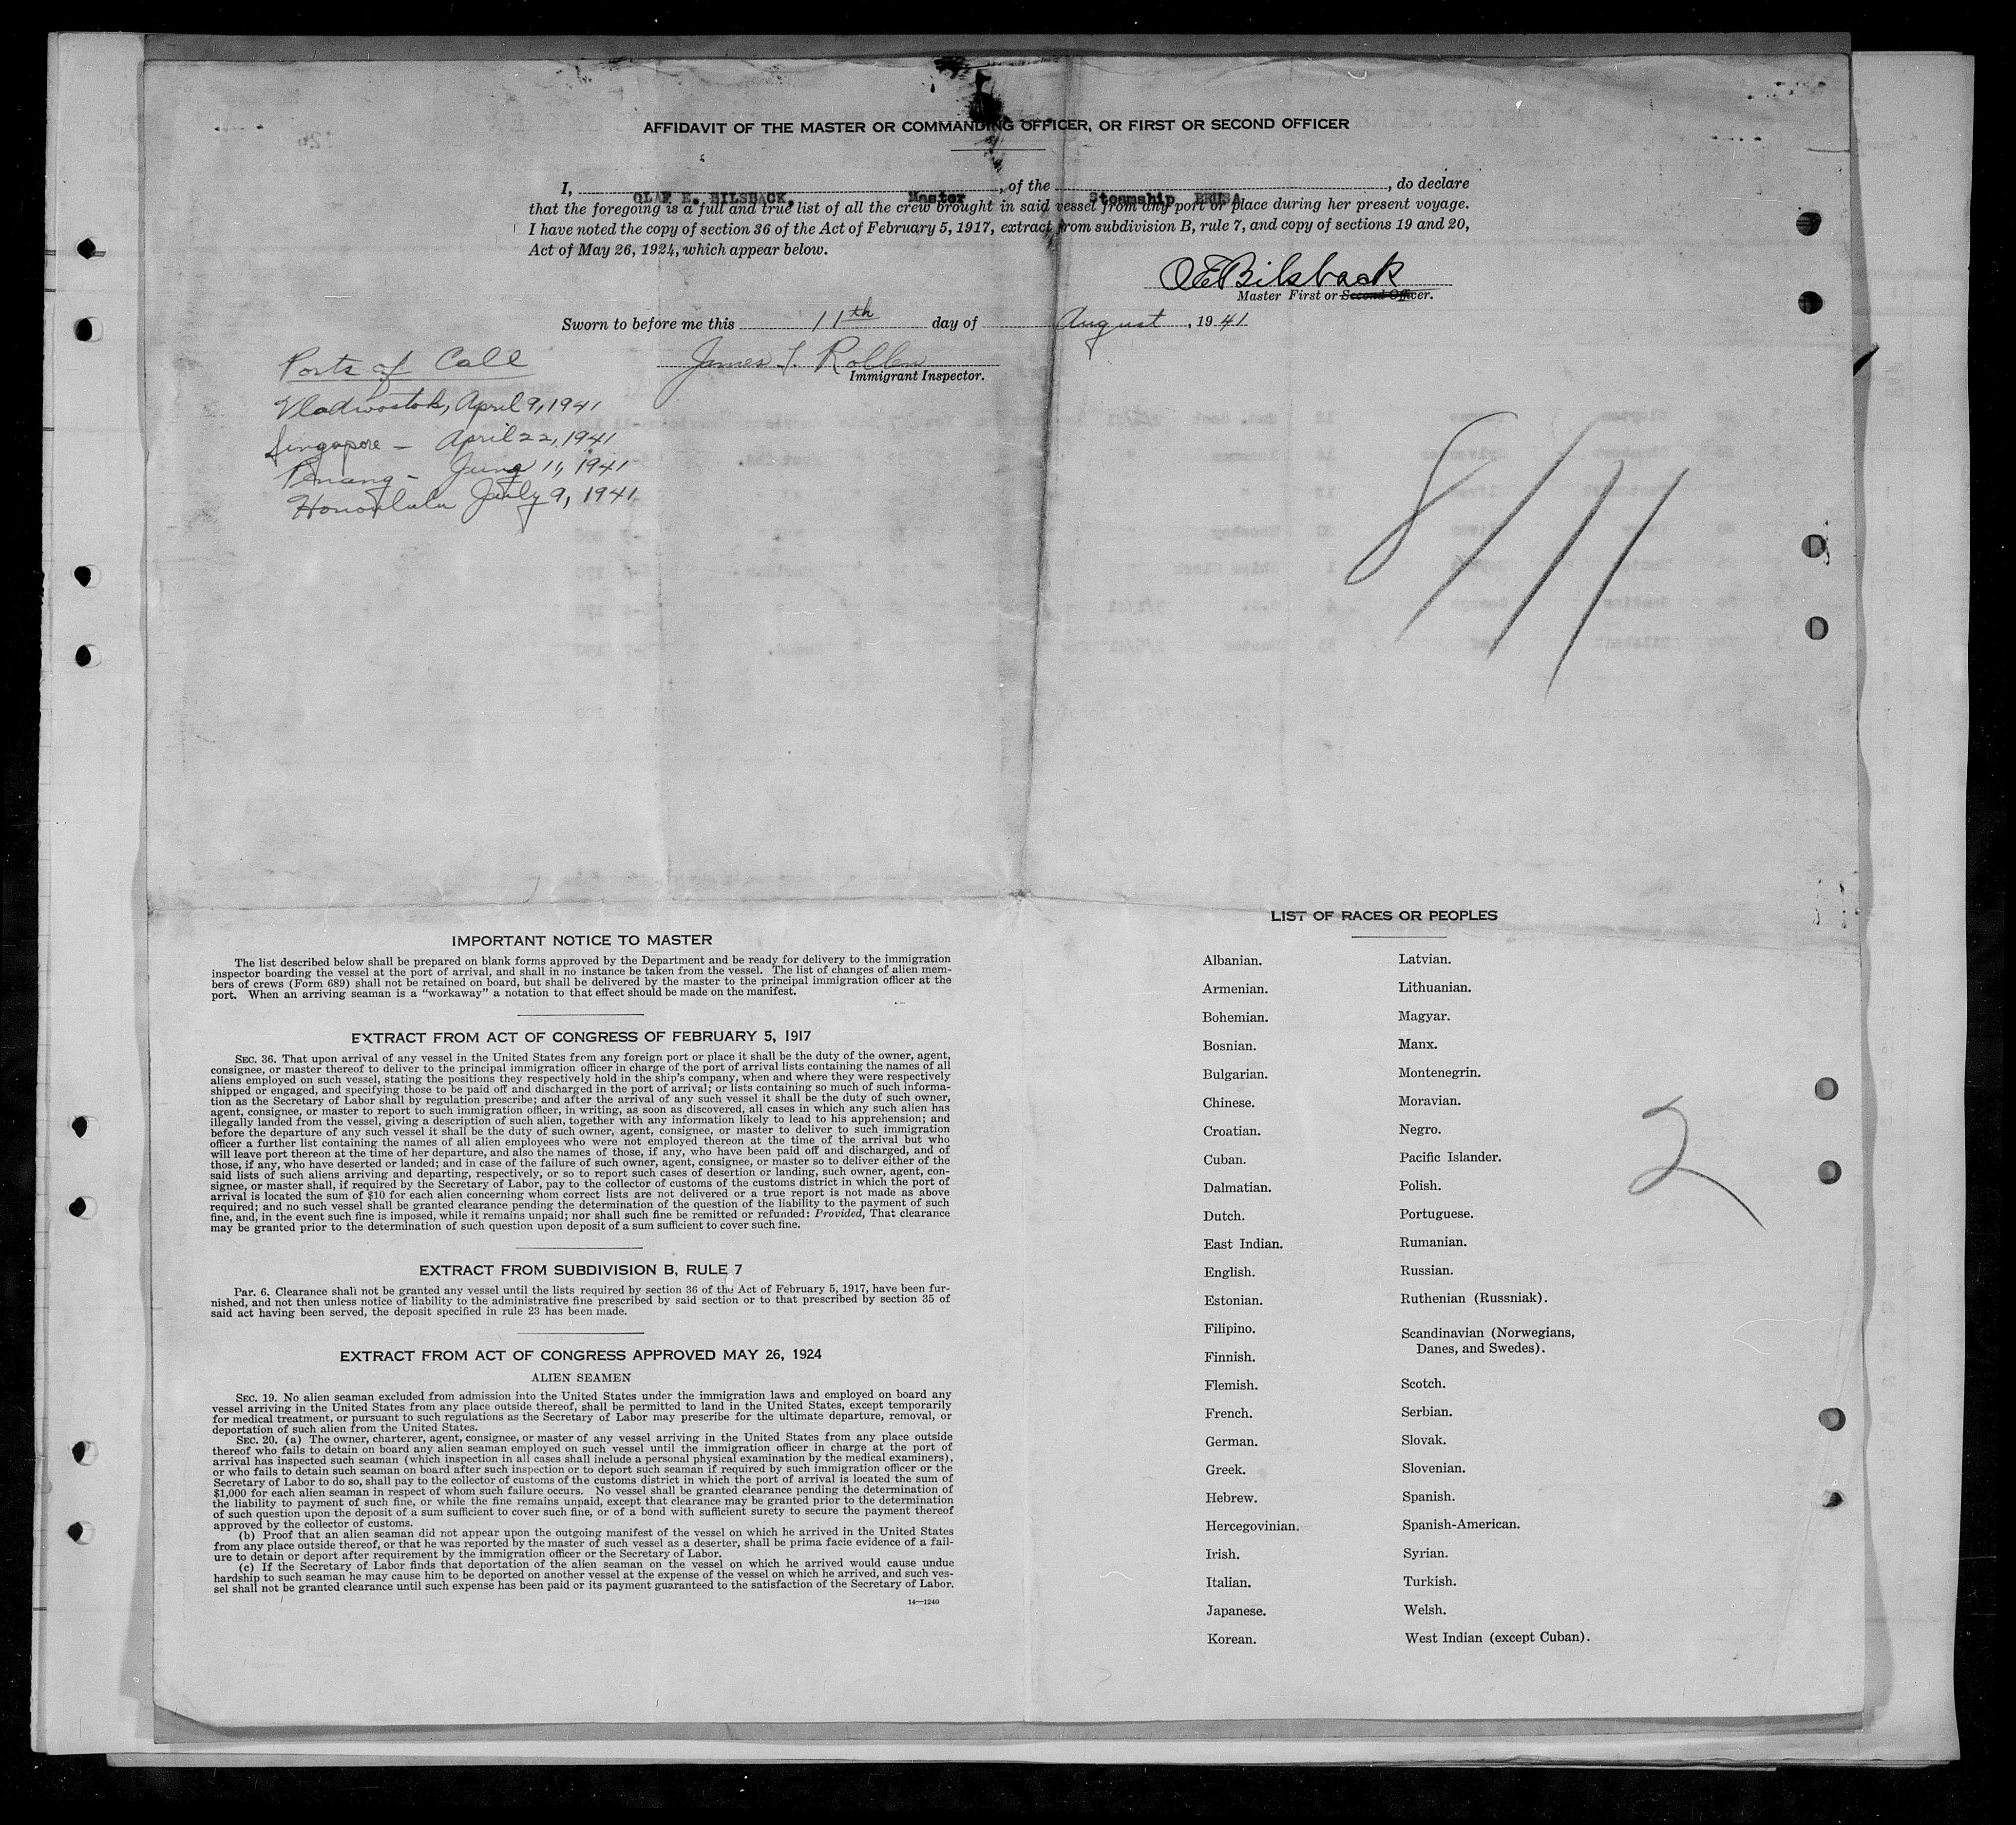 AFFIDAVIT OF THE MASTER OR COMMANDING OFFICER, OR FIRST OR SECOND OFFICER
I, OLAF E. BILSBACK, Master, of the Steamship BRUSA, do declare
that the foregoing is a full and true list of all the crew brought in said vessel from any port or place during her present voyage.
I have noted the copy of section 36 of the Act of February 5, 1917, extract from subdivision B, rule 7, and copy of sections 19 and 20,
Act of May 26, 1924, which appear below.
O E Bilsback
Master First or Second Officer.
Sworn to before me this 11th day of August, 1941
James
Immigrant Inspector.
Ports of Call
Vladivostok, April 9, 1941
Singapore — April 22, 1941
Penang - June 11, 1941
Honolulu July 9, 1941
8/11
IMPORTANT NOTICE TO MASTER
The list described below shall be prepared on blank forms approved by the Department and be ready for delivery to the immigration
inspector boarding the vessel at the port of arrival, and shall in no instance be taken from the vessel. The list of changes of alien mem-
bers of crews (Form 689) shall not be retained on board, but shall be delivered by the master to the principal immigration officer at the
port. When an arriving seaman is a “workaway” a notation to that effect should be made on the manifest.
EXTRACT FROM ACT OF CONGRESS OF FEBRUARY 5, 1917
SEC. 36. That upon arrival of any vessel in the United States from any foreign port or place it shall be the duty of the owner, agent,
consignee, or master thereof to deliver to the principal immigration officer in charge of the port of arrival lists containing the names of all
aliens employed on such vessel, stating the positions they respectively hold in the ship's company, when and where they were respectively
shipped or engaged, and specifying those to be paid off and discharged in the port of arrival; or lists containing so much of such informa-
tion as the Secretary of Labor shall by regulation prescribe; and after the arrival of any such vessel it shall be the duty of such owner,
agent, consignee, or master to report to such immigration officer, in writing, as soon as discovered, all cases in which any such alien has
illegally landed from the vessel, giving a description of such alien, together with any information likely to lead to his apprehension; and
before the departure of any such vessel it shall be the duty of such owner, agent, consignee, or master to deliver to such immigration
officer a further list containing the names of all alien employees who were not employed thereon at the time of the arrival but who
will leave port thereon at the time of her departure, and also the names of those, if any, who have been paid off and discharged, and of
those, if any, who have deserted or landed; and in case of the failure of such owner, agent, consignee, or master so to deliver either of the
said lists of such aliens arriving and departing, respectively, or so to report such cases of desertion or landing, such owner, agent, con-
signee, or master shall, if required by the Secretary of Labor, pay to the collector of customs of the customs district in which the port of
arrival is located the sum of $10 for each alien concerning whom correct lists are not delivered or a true report is not made as above
required; and no such vessel shall be granted clearance pending the determination of the question of the liability to the payment of such
fine, and, in the event such fine is imposed, while it remains unpaid; nor shall such fine be remitted or refunded: Provided, That clearance
may be granted prior to the determination of such question upon deposit of a sum sufficient to cover such fine.
EXTRACT FROM SUBDIVISION B, RULE 7
Par. 6. Clearance shall not be granted any vessel until the lists required by section 36 of the Act of February 5, 1917, have been fur-
nished, and not then unless notice of liability to the administrative fine prescribed by said section or to that prescribed by section 35 of
said act having been served, the deposit specified in rule 23 has been made.
EXTRACT FROM ACT OF CONGRESS APPROVED MAY 26, 1924
ALIEN SEAMEN
SEC. 19. No alien seaman excluded from admission into the United States under the immigration laws and employed on board any
vessel arriving in the United States from any place outside thereof, shall be permitted to land in the United States, except temporarily
for medical treatment, or pursuant to such regulations as the Secretary of Labor may prescribe for the ultimate departure, removal, or
deportation of such alien from the United States.
SEC. 20. (a) The owner, charterer, agent, consignee, or master of any vessel arriving in the United States from any place outside
thereof who fails to detain on board any alien seaman employed on such vessel until the immigration officer in charge at the port of
arrival has inspected such seaman (which inspection in all cases shall include a personal physical examination by the medical examiners),
or who fails to detain such seaman on board after such inspection or to deport such seaman if required by such immigration officer or the
Secretary of Labor to do so, shall pay to the collector of customs of the customs district in which the port of arrival is located the sum of
$1,000 for each alien seaman in respect of whom such failure occurs. No vessel shall be granted clearance pending the determination of
the liability to payment of such fine, or while the fine remains unpaid, except that clearance may be granted prior to the determination
of such question upon the deposit of a sum sufficient to cover such fine, or of a bond with sufficient surety to secure the payment thereof
approved by the collector of customs.
(b) Proof that an alien seaman did not appear upon the outgoing manifest of the vessel on which he arrived in the United States
from any place outside thereof, or that he was reported by the master of such vessel as a deserter, shall be prima facie evidence of a fail-
ure to detain or deport after requirement by the immigration officer or the Secretary of Labor.
(c) If the Secretary of Labor finds that deportation of the alien seaman on the vessel on which he arrived would cause undue
hardship to such seaman he may cause him to be deported on another vessel at the expense of the vessel on which he arrived, and such ves-
sel shall not be granted clearance until such expense has been paid or its payment guaranteed to the satisfaction of the Secretary of Labor.
14—1240
LIST OF RACES OR PEOPLES
Albanian.
Armenian.
Bohemian.
Bosnian.
Bulgarian.
Chinese.
Croatian.
Cuban.
Dalmatian.
Dutch.
East Indian.
English.
Estonian.
Filipino.
Finnish.
Flemish.
French.
German.
Greek.
Hebrew.
Hercegovinian.
Irish.
Italian.
Japanese.
Korean.
Latvian.
Lithuanian.
Magyar.
Manx.
Montenegrin.
Moravian.
Negro.
Pacific Islander.
Polish.
Portuguese.
Rumanian.
Russian.
Ruthenian (Russniak).
Scandinavian (Norwegians,
Danes, and Swedes).
Scotch.
Serbian.
Slovak.
Slovenian.
Spanish.
Spanish-American.
Syrian.
Turkish.
Welsh.
West Indian (except Cuban).
2